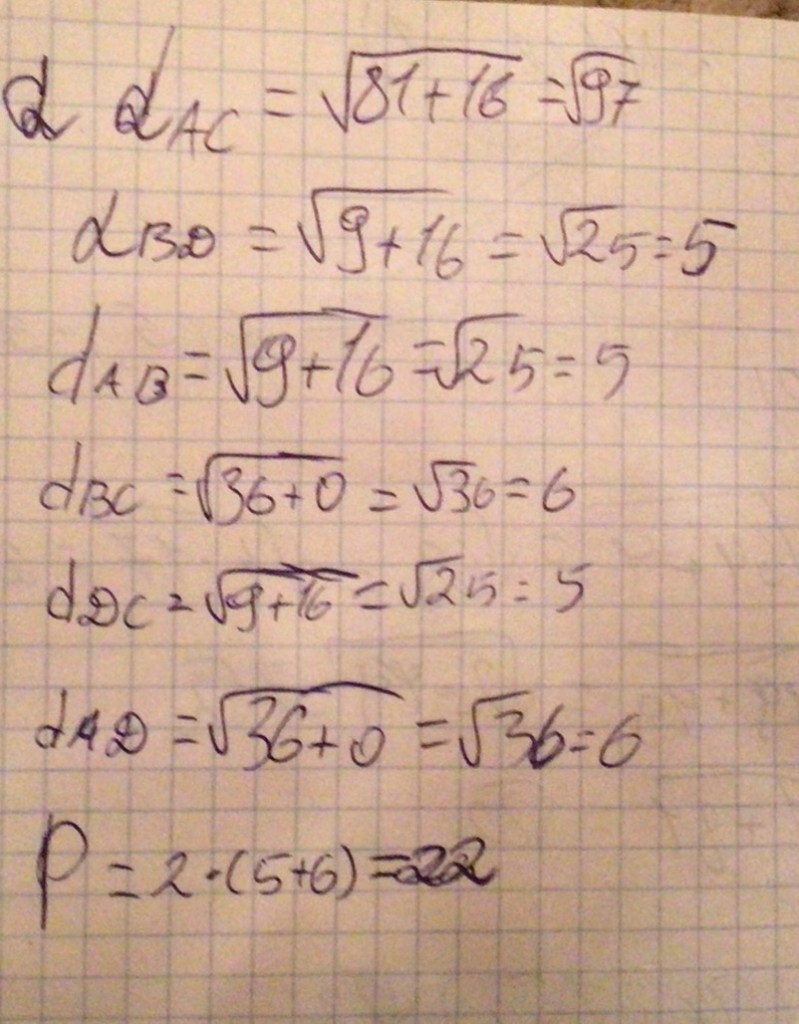 d d_AC = √81+16 = √97
d_BD = √9+16 = √25 = 5
d_AB = √9+16 = √25 = 5
d_BC = √36+0 = √36 = 6
d_DC = √9+16 = √25 = 5
d_AD = √36+0 = √36 = 6
P = 2·(5+6) = 22